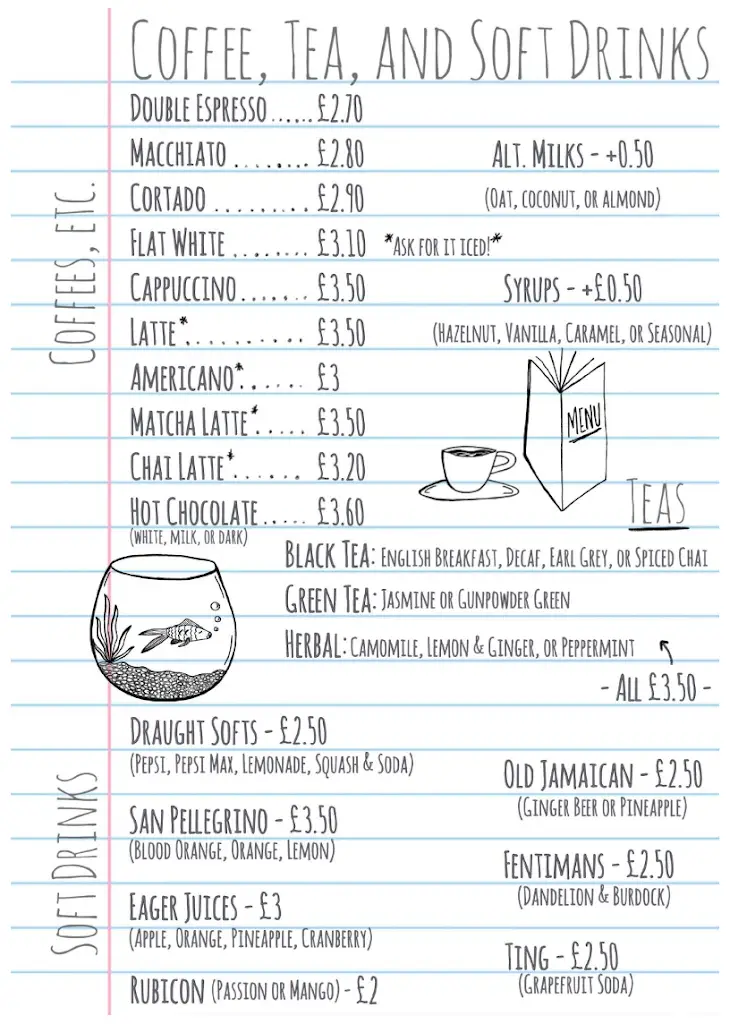 Coffee, Tea, and Soft Drinks
Coffees, etc.
Double Espresso ...... £2.70
Macchiato ........ £2.80
Cortado ......... £2.90
Flat White ........ £3.10
Cappuccino ....... £3.50
Latte* .......... £3.50
Americano* ...... £3
Matcha Latte* ..... £3.50
Chai Latte* ....... £3.20
Hot Chocolate ..... £3.60
(White, milk, or dark)
*Ask for it iced!*
Alt. Milks - +0.50
(Oat, coconut, or almond)
Syrups - +£0.50
(Hazelnut, Vanilla, Caramel, or Seasonal)
Menu
Teas
Black Tea: English Breakfast, Decaf, Earl Grey, or Spiced Chai
Green Tea: Jasmine or Gunpowder Green
Herbal: Camomile, Lemon & Ginger, or Peppermint
- All £3.50 -
Soft Drinks
Draught Softs - £2.50
(Pepsi, Pepsi Max, Lemonade, Squash & Soda)
San Pellegrino - £3.50
(Blood Orange, Orange, Lemon)
Eager Juices - £3
(Apple, Orange, Pineapple, Cranberry)
Rubicon (Passion or Mango) - £2
Old Jamaican - £2.50
(Ginger Beer or Pineapple)
Fentimans - £2.50
(Dandelion & Burdock)
Ting - £2.50
(Grapefruit Soda)